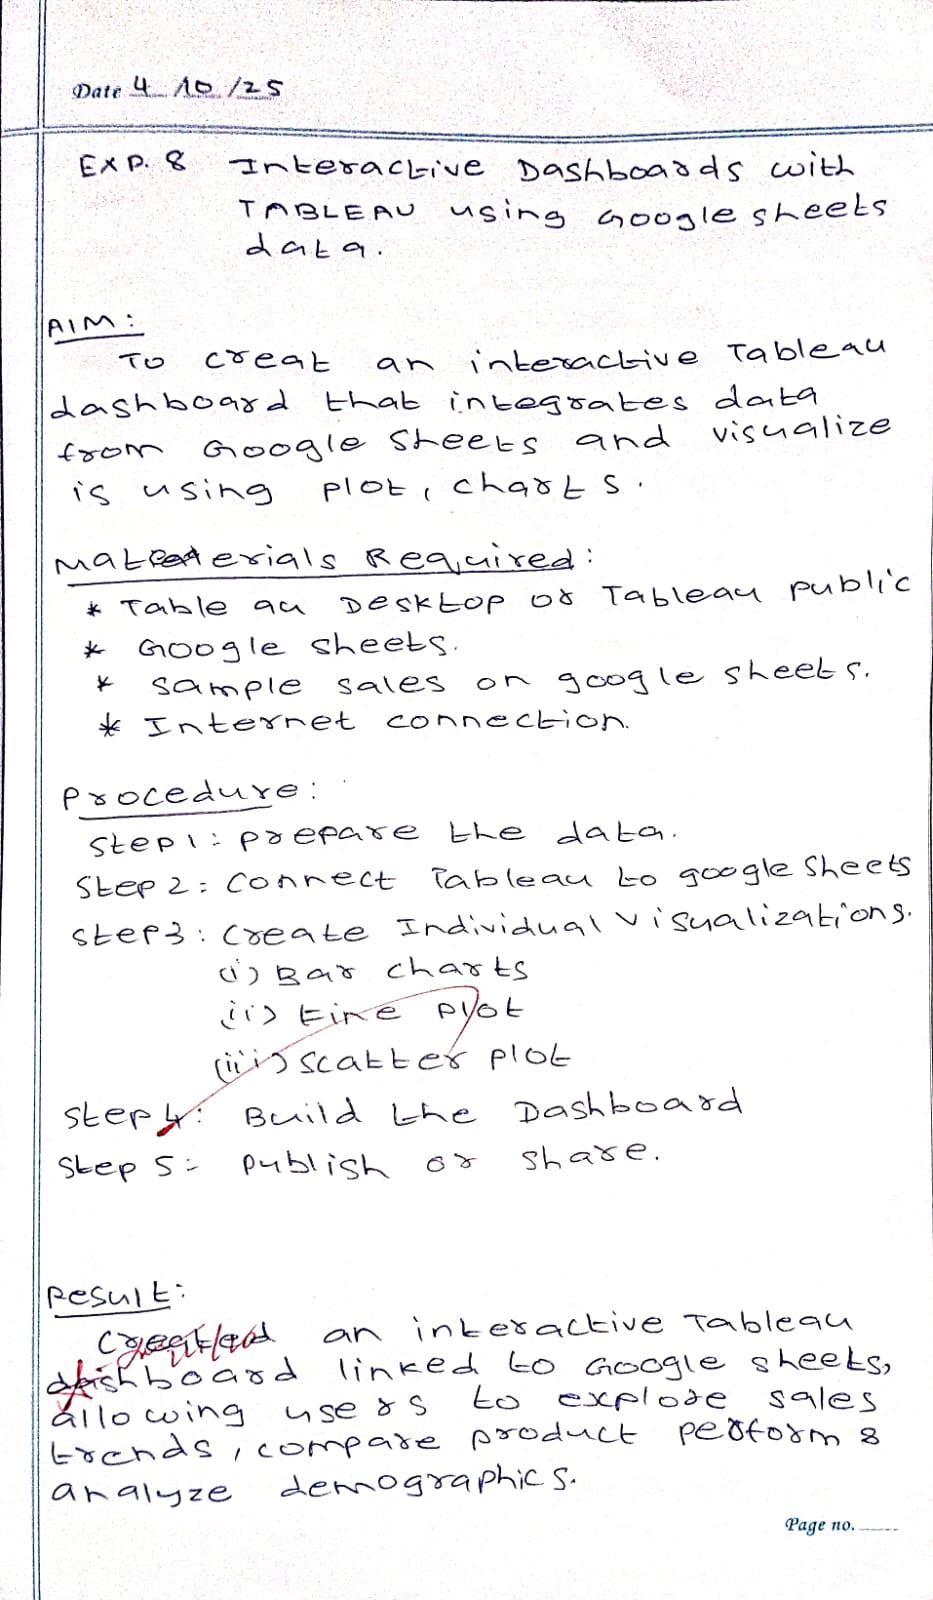 Date 4 10/25
EXP. 8 Interactive Dashboards with
TABLEAU using Google sheets
data.
AIM:
To creat an interactive Tableau
dashboard that integrates data
from Google Sheets and visualize
is using plot, charts.
Materials Required:
* Tableau Desktop or Tableau public
* Google sheets.
* sample sales on google sheets.
* Internet connection.
Procedure:
Step 1: prepare the data.
Step 2: Connect Tableau to google Sheets
Step 3: Create Individual visualizations.
(i) Bar charts
(ii) Line plot
(iii) Scatter plot
Step 4: Build the Dashboard
Step 5: publish or share.
Result:
Created an interactive Tableau
dashboard linked to Google sheets,
allowing users to explore sales
trends, compare product perform &
analyze demographics.
Page no.